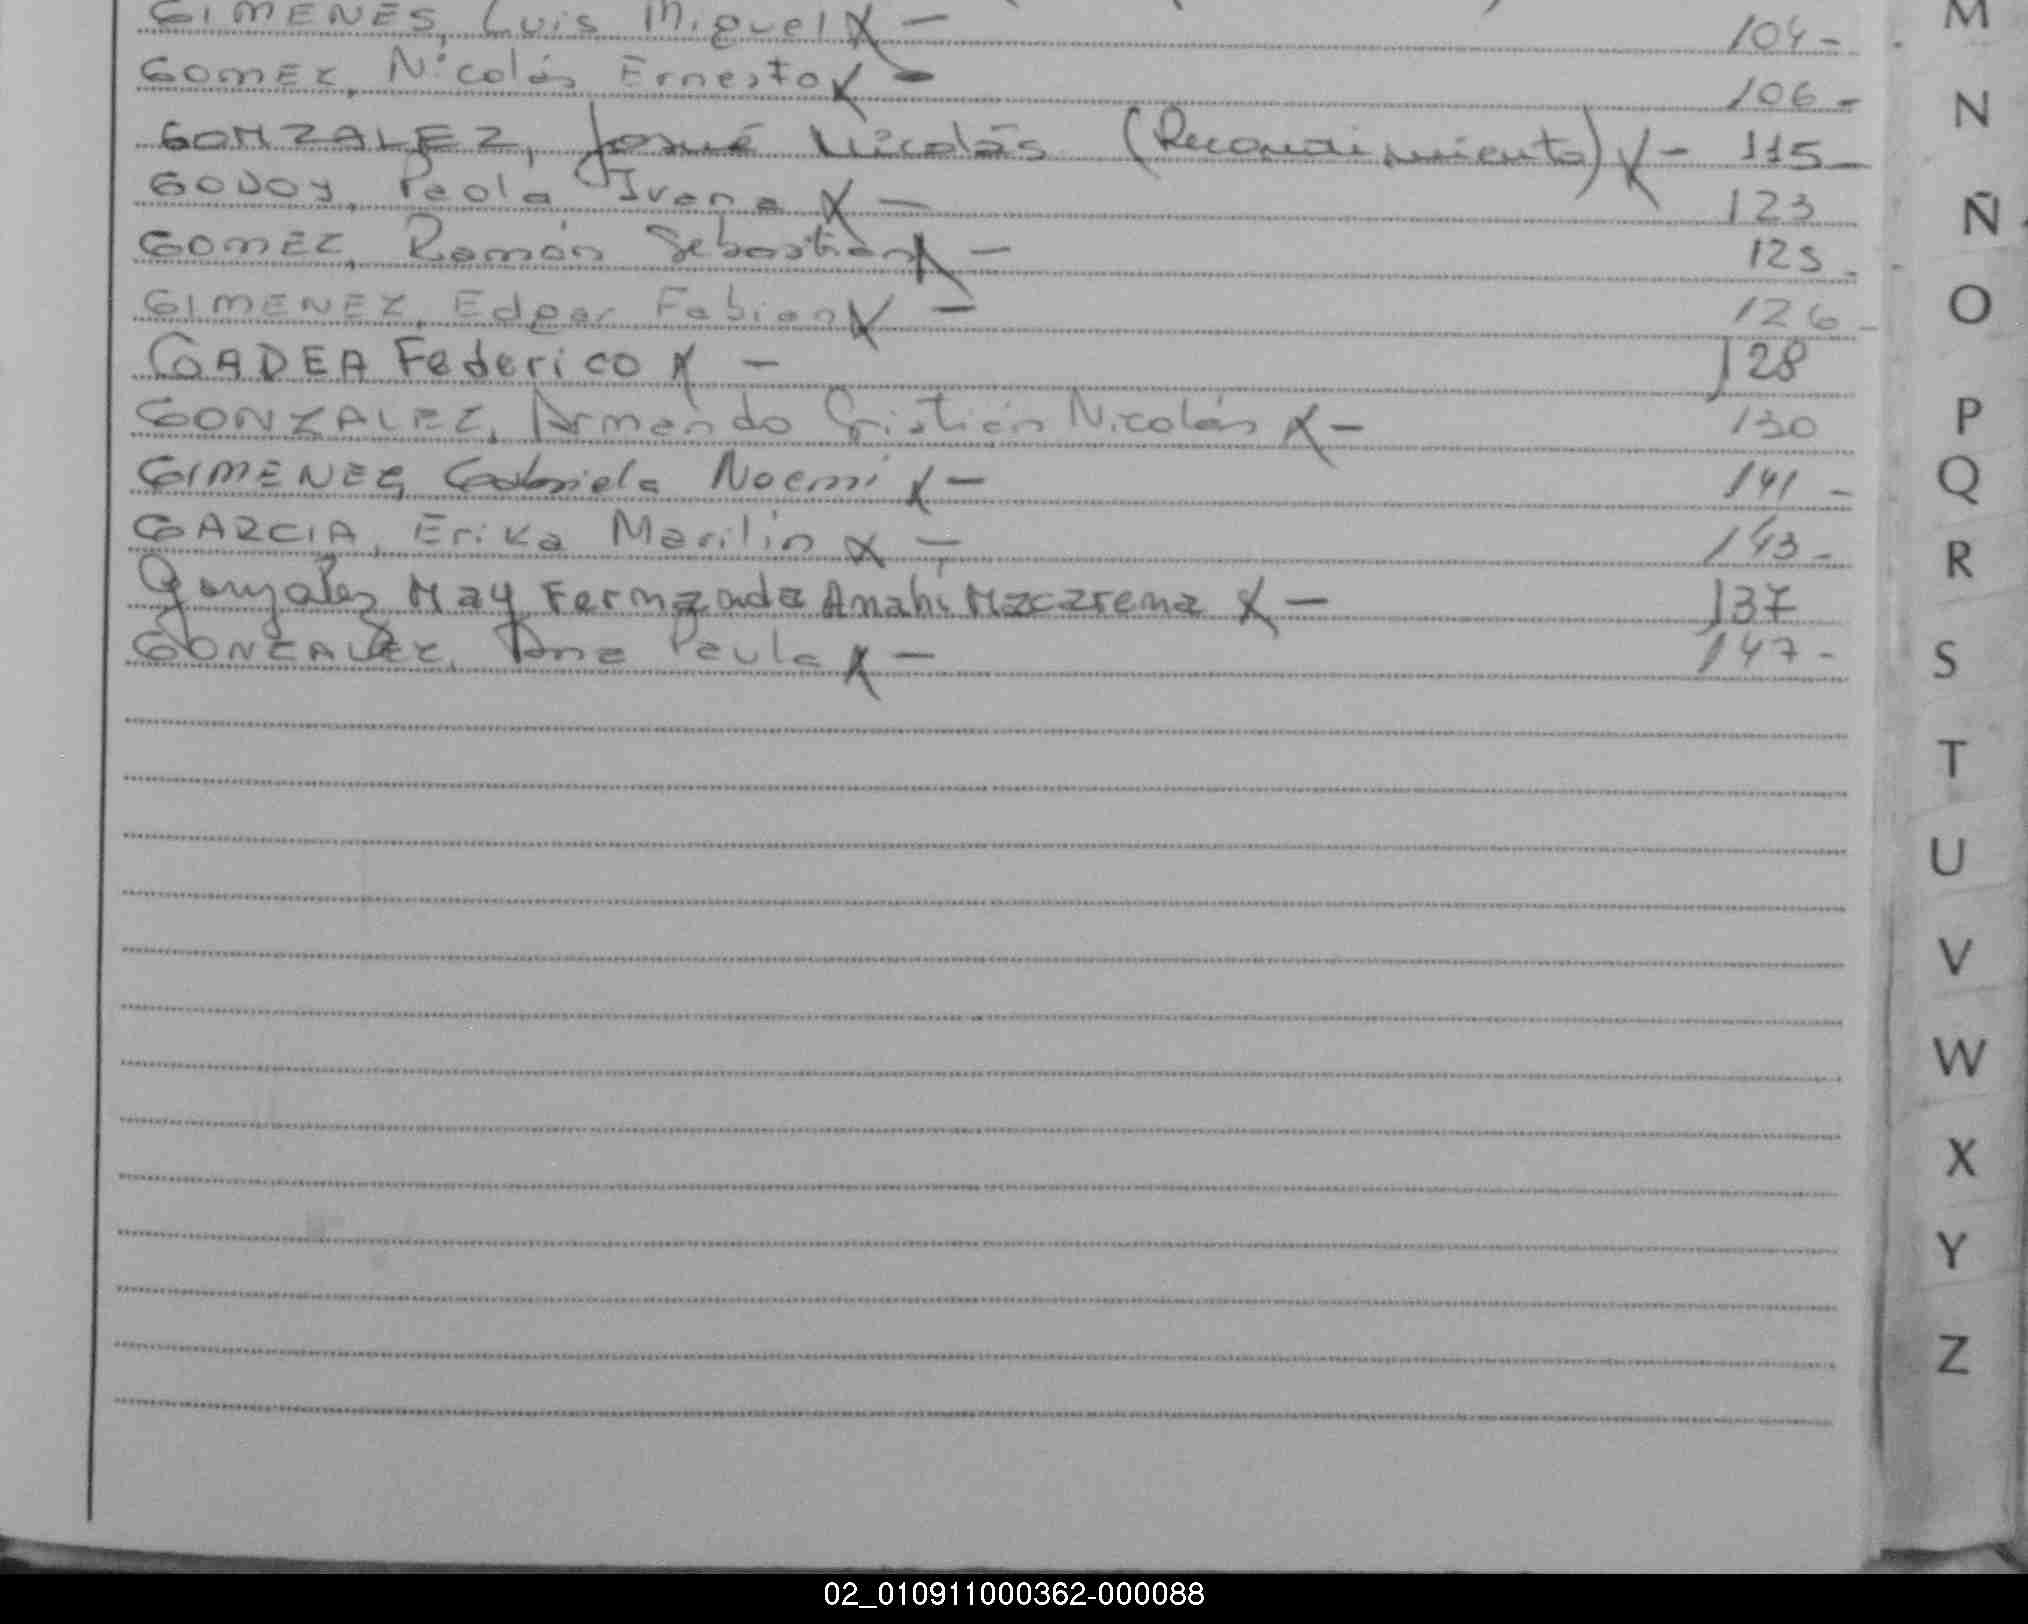 GIMENES, Luis Miguel X — 104-
GOMEZ, Nicolás Ernesto X — 106-
GONZALEZ, Josué Nicolás (Reconocimiento) X - 115-
GODOY, Paola Ivana X — 123
GOMEZ, Ramón Sebastián X — 125-
GIMENEZ, Edgar Fabian X — 126-
GADEA Federico X — 128
GONZALEZ, Armando Cristián Nicolás X — 130
GIMENEZ, Gabriela Noemí X — 141-
GARCIA, Erika Marilin X — 143-
Gonzalez May Fernanda Anahí Macarena X — 137
GONZALEZ, Ana Paula X — 147-
M
N
Ñ
O
P
Q
R
S
T
U
V
W
X
Y
Z
02_010911000362-000088